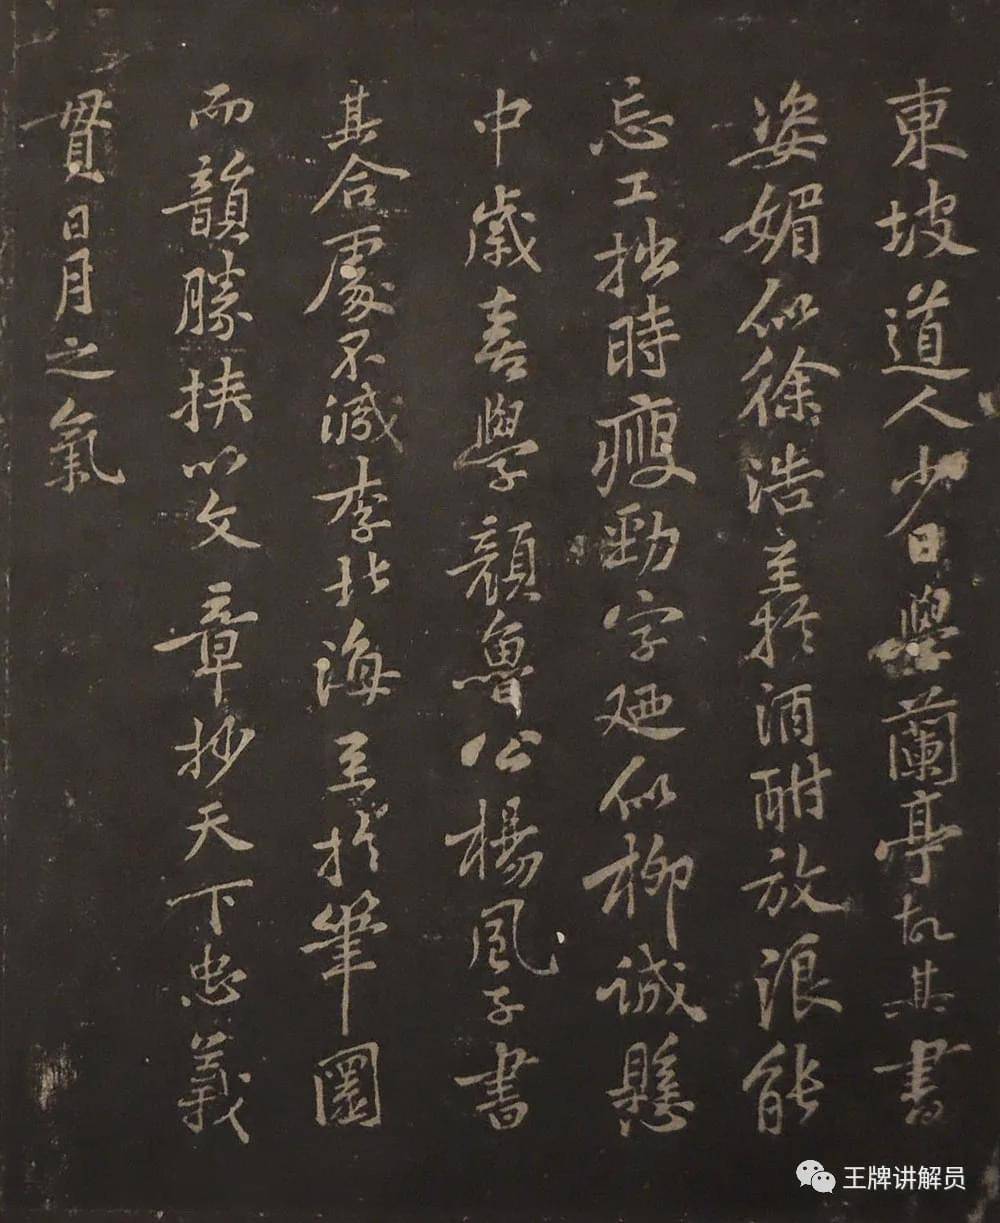 東坡道人少日學蘭亭故其書
姿媚似徐浩至於酒酣放浪能
忘工拙時瘦勁字廼似柳誠懸
中歲喜學顏魯公楊風子書
其合處不減李北海至於筆圜
而韻勝挾以文章抄天下忠義
貫日月之氣
王牌讲解员